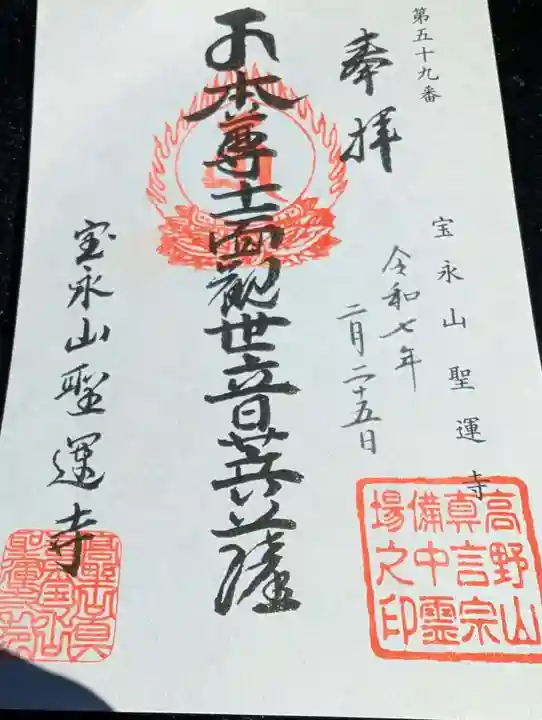 第五十九番
宝永山聖運寺
奉拝
令和七年
二月二十五日
本尊十一面観世音菩薩
宝永山聖運寺
高野山
真言宗
備中霊
場之印